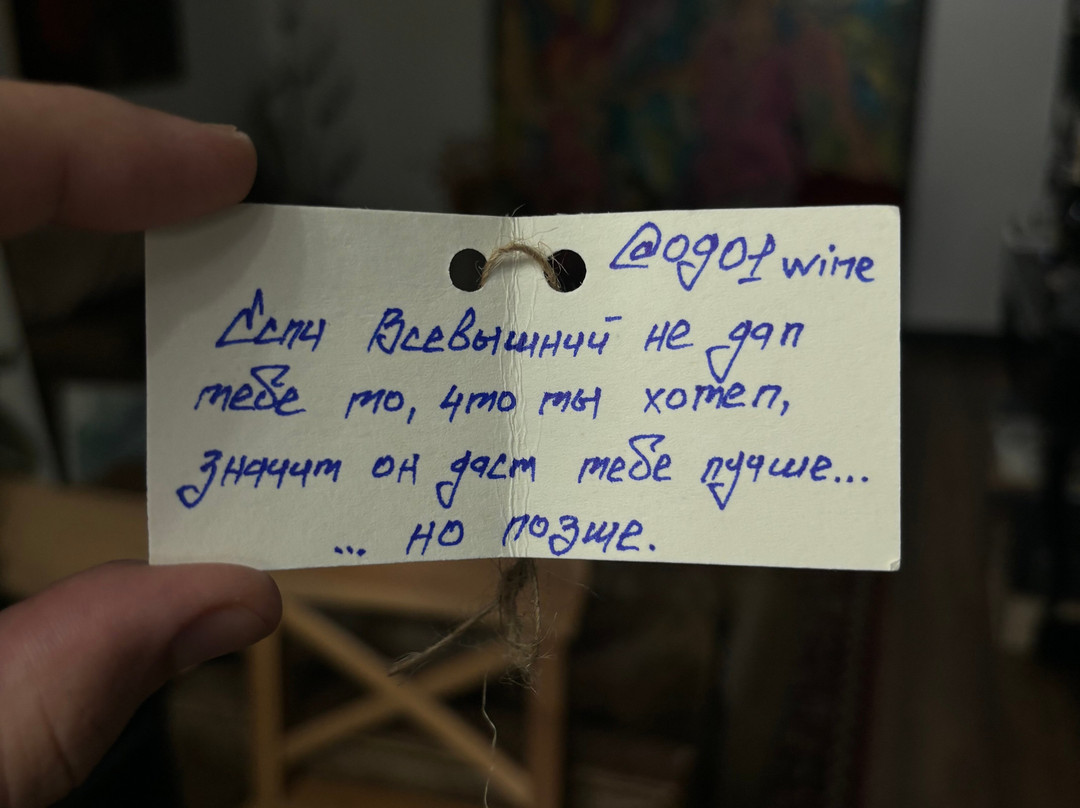 @ogo1wine
Если Всевышний не дал
тебе то, что ты хотел,
значит он даст тебе лучше...
... но позже.